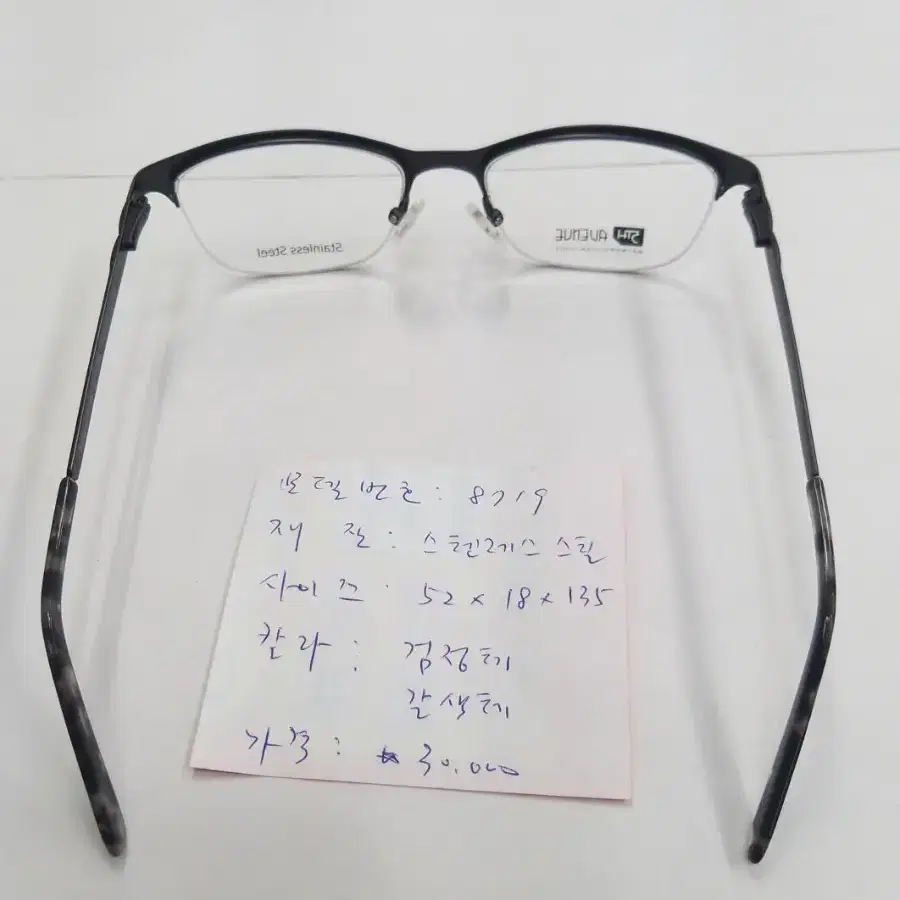 5TH AVENUE
Stainless Steel
모델번호 : 8719
재 질 : 스텐레스 스틸
사이즈 : 52 x 18 x 135
칼라 : 검정테
갈색테
가격 : 30,000